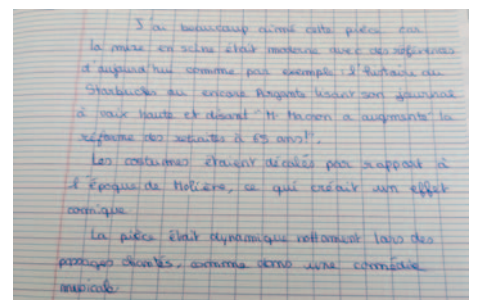 J'ai beaucoup aimé cette pièce car
la mise en scène était moderne avec des références
d'aujourd'hui comme par exemple : l'histoire du
Starbucks ou encore Argante lisant son journal
à voix haute et disant "M. Macron a augmenté la
réforme des retraites à 65 ans!".
Les costumes étaient décalés par rapport à
l'époque de Molière, ce qui créait un effet
comique.
La pièce était dynamique nottament lors des
passages chantés, comme dans une comédie
musicale.